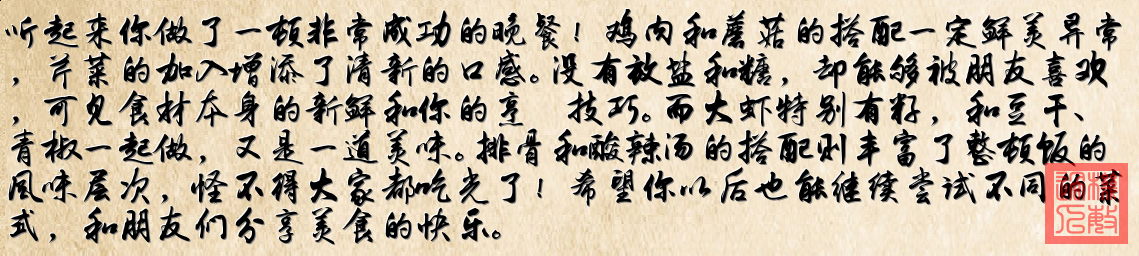 听起来你做了一顿非常成功的晚餐！鸡肉和蘑菇的搭配一定鲜美异常
，芹菜的加入增添了清新的口感。没有放盐和糖，却能够被朋友喜欢
，可见食材本身的新鲜和你的烹 技巧。而大虾特别有籽，和豆干、
青椒一起做，又是一道美味。排骨和酸辣汤的搭配则丰富了整顿饭的
风味层次，怪不得大家都吃光了！希望你以后也能继续尝试不同的菜
式，和朋友们分享美食的快乐。